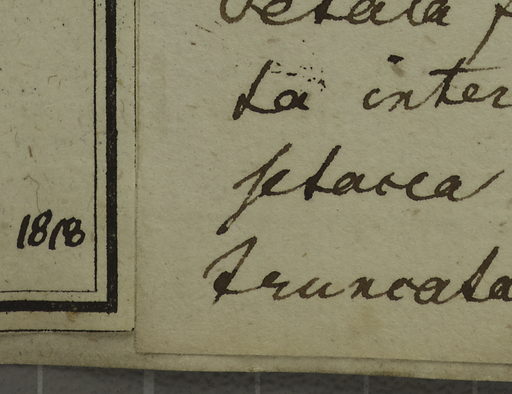 1818
Petala f
ta inter
setacea
truncata